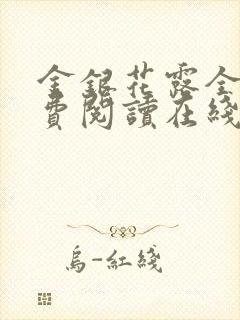 金銀花露全
費閱讀在綫
烏-紅綫